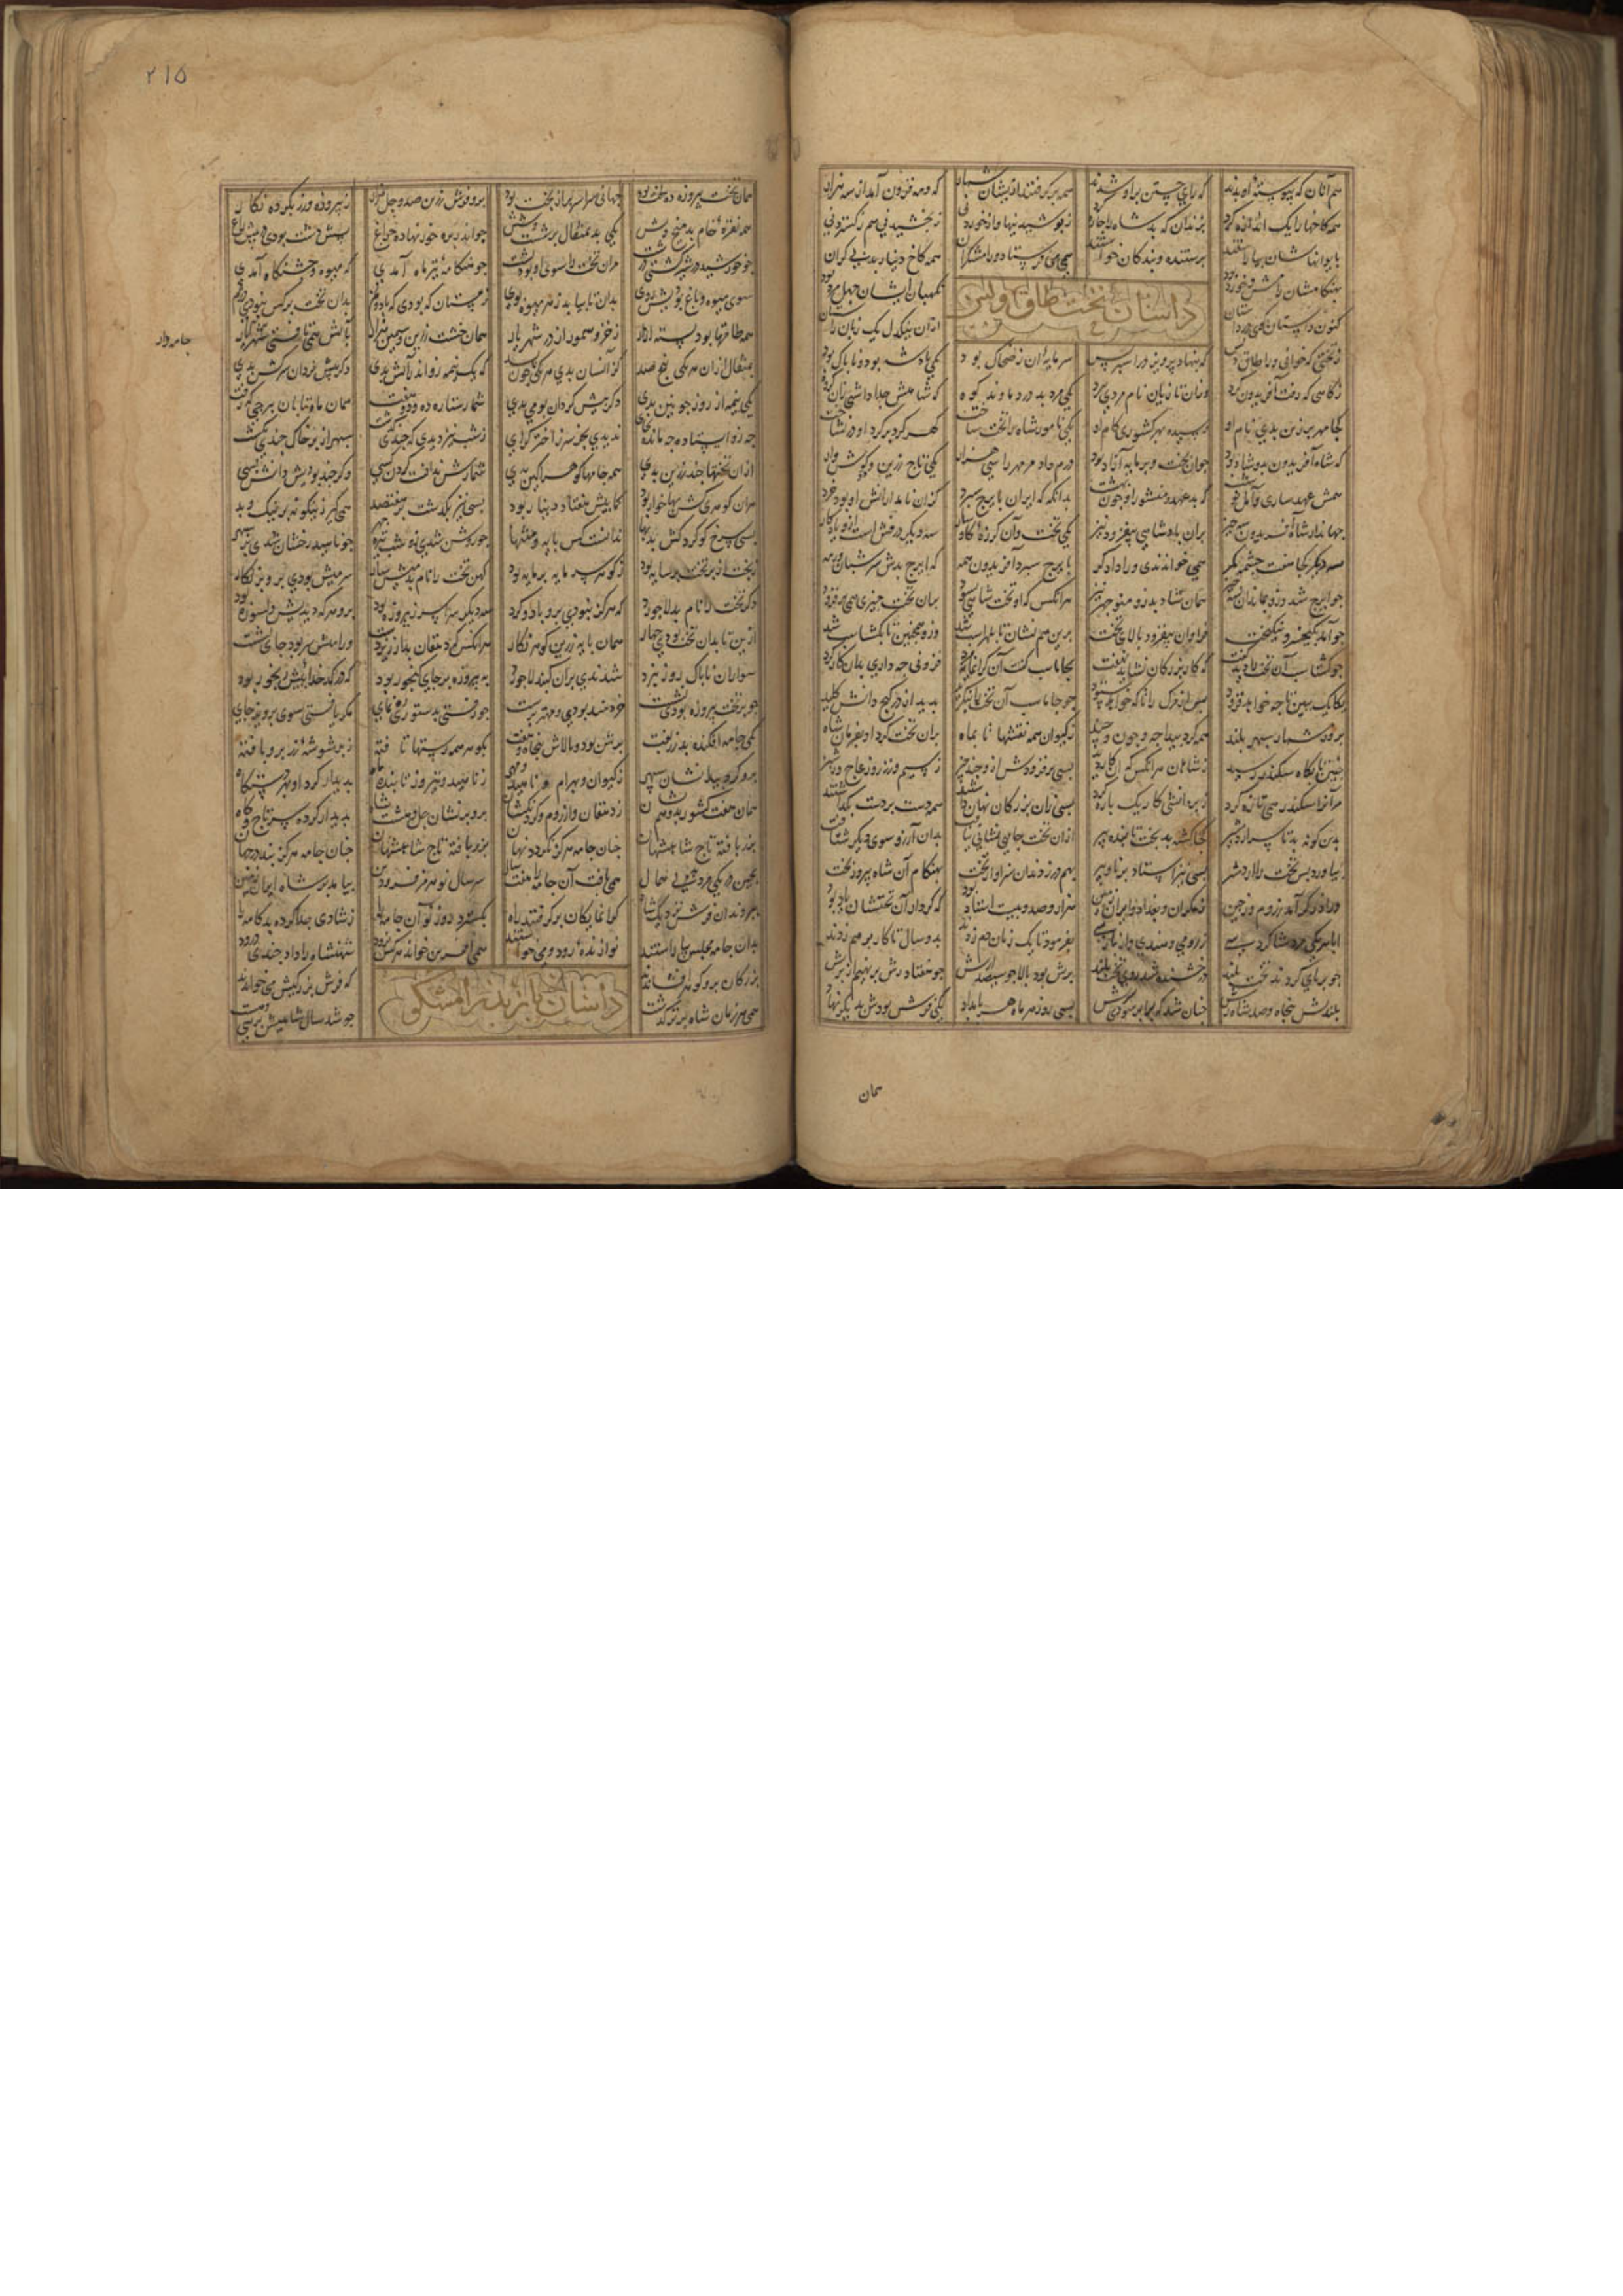 هم آنان که پیوسته او بدند که رای جستن براو شدند همه برگرفتند ازیشان شمار که ومه فزون آمد از سه هزار
همه کاخها را یک اندازه کرد بزندان که بد شاه را جای کرد ز پوشیدنیها و از خوردنی ز بخشیدنی هم ز گستردنی
بایوانهاشان بیاراستند پرستنده و بندکان خواستند همی می فرستاد و رامشکران همه کاخ دینار بد بی کران
بهنکامشان رامش و خورد بود نکهبان ایشان چهل مرد بود
کنون داستان کوی در داستان ازان یکدل یک زبان راستان
داستان تخت طاق دیس
ز تختی که خوانی ورا طاق دیس که بنهاد پرویز در اسپریس سر مایه آن ز ضحاک بود یکی پادشه بود و ناپاک بود
ز کاهی که رفت آفریدون کرد وزان تازیان نام مردی ببرد یکی مرد بد در دماوند کوه که شاهش جدا داشتی زان کروه
کجا مهر برزین بدی نام او رسیده بهر کشوری کام او یکی نامور شاه را تخت ساخت کهر کرد بر کرد او در نشاخت
که شاه آفریدون بدو شاد بود جوان بخت و پرمایه آزاد بود درم داد مر مهر را سی هزار یکی تاج زرین و دو کوشوار
همش عهد ساری و آمل نوشت که بد عهد و منشور او چون بهشت بدانکه که ایران بایرج سپرد کزان نامدارانش او بود خرد
جهاندار شاه آفریدون سه چیز بران پادشاهی بیفزود نیز یکی تخت وآن کرزه کاوسار سه دیکر درفش است ازو یادکار
سه دیکر کجا هفت چشمه کهر همی خواندندی ورا دادکر بایرج سپرد آفریدون همه که ایرج بدش سر شبان و رمه
چو ایرج شد وزو بماند آن سه چیز همان شاد بد زو منوچهر نیز هرانکس که او تخت شاهی بسود بران تخت چیزی همی برفزود
چو آمد بکیخسرو نیکبخت فراوان بیفزود بالای تخت برین هم نشان تا بلهراسب شد وزو همچنین تا بکشتاسب شد
چو کشتاسب آن تخت را دید کفت که کار بزرکان نشاید نهفت بجاماسب کفت آن کرانمایه مرد فزونی چه داری بدان کارکرد
یکایک ببین تا چه خواهد فزود پس از مرک ما را که خواهد ستود چو جاماسب آن تخت را بنکرید بدید از در کنج دانش کلید
برو بر شمار سپهر بلند همه کرد پیدا چه و چون و چند ز کیوان همه نقشها تا بماه بران تخت کرد او بفرمان شاه
چنین تا بکاه سکندر رسید ز شاهان هرانکس که آن کاه دید بسی برفزودش ازو چند چیز ز سیم و ز زر و ز عاج و ز شیز
مر آنرا سکندر همی تازه کرد ز بی دانشی کار یک باره کرد بسی زان بزرکان نهان داشتند همه دست بر دست بکذاشتند
بدین کونه بد تا سر اردشیر کجا کشته بد بخت تابنده پیر ازان تخت جایی نشانی نیافت بدان آرزو سوی دیکر شتافت
بیاورد پس تخت را اردشیر بسی نیز استاد برنا و پیر بهم در زدند آن سزاوار تخت بهنکام آن شاه پیروز بخت
ورا درکر آمد ز روم و ز چین ز مکران و بغداد و ایران زمین هزار و صد و بیست استاد بود که کردار آن تختشان یاد بود
ابا هر یکی مرد شاکرد سی ز رومی و هندی و از پارسی بفرمود تا یک زمان دم زدند بدو سال تا کار بر هم زدند
چو بر پای کردند تخت بلند درخشنده شد روی تخت بلند برش بود بالا چو سیصد ارش چو هفتاد رش بر نهیم از برش
بلندش پنجاه و صد شاه رش چنان شد که بر ابر سودی سرش بسی روز هر ماه هر بامداد یکی فرش بودش بدیکر نهاد
همان
۲۱۵
همان تخت پیروزه ده لخت بود جهانی سراسر بران تخت بود برو نقش زرین صد و چل هزار ز پیروزه و زر بکرده نکار
همه نقره خام بد میخ و بش یکی بد بمثقال بر شست و شش چو اندر بره خور نهادی چراغ پسش دشت بودی و پیش باغ
چو خورشید در شیر کشتی درشت مران تخت را سوی او بود پشت چو هنکامه تیر ماه آمدی که میوه و جشنکاه آمدی
سوی میوه و باغ بودیش روی بدان تا بیابد ز هر میوه بوی زمستان که بودی که باد و نم بدان تخت بر کس نبودی دژم
همه طاقها بود بسته ازار ز خز و سمور از در شهریار همان خشت زرین و سیمین هزار بآتش همی تافتی
بمثقال ازان هر یکی پنج صد کز آتش بدی هر یکی چون بسد که یک نیمه زو اندر آتش بدی دکر پیش کردان سرکش بدی
جامه‌دار
شمار ستاره ده و دو و هفت همان ماه تابان ببرجی که رفت
چه زو ایستاده چه مانده بجای ندیدی بجز سر ز اختر کرای ز شب نیز دیدی که چندی کذشت سپهر از بر خاک چندی بکشت
ازان تختها چند زرین بدی همه جامها کوهر آکین بدی شمارش ندانست کردن کسی وکر چند بودیش دانش بسی
هران کوهری کش بها خوار بود کمابیش هفتاد دینار بود بسی نیز بکذشت بر هفتصد همی کیر زین کونه بر نیک و بد
بسی سرخ کوکرد کش بد بها ندانست کس پایه و منتها چو روشن شدی نو شب تیره چهر چو ناهید رخشان شدی بر سپهر
ز کوهر سرمایه برمایه بود کهن تخت را نام بد میش سار سر میش بودی برو بر نکار
دکر تخت را نام بد لاجورد که هرکز نبودی برو باد و کرد سه دیکر سراسر ز پیروزه بود برو هر که دیدیش دلسوزه بود
ازین تا بدان تخت بودی چهار همان پایه زرین کوهر نکار هرانکس که دهقان بد و زیردست ورا میش سر بود جای نشست
سواران ناباک روز نبرد شدندی بران کنبد لاجورد به پیروزه بر جای کنجور بود که از کدخداییش رنجور بود
چو بر تخت پیروزه بودی نشست خردمند بودی و مهتر پرست چو رفتی بدستوری رهنمای مکر یافتی سوی پرویز جای
یکی جامه افکنده بد زربفت برش بود و بالاش پنجاه و هفت بکوهر همه ریشها تافته زبر شوشه زر برو بافته
برو کرد پیدا نشان سپهر ز کیوان و بهرام و ناهید و مهر ز ناهید و تیر و ز تابنده ماه پدیدار کرد او بهر دستکاه
همان هفت کشور بدو هم نشان ز دهقان و از روم و کردنکشان برو بر نشان چل و هشت شاه پدیدار کرده سر و تاج و کاه
بزر بافته تاج شاهنشهان چنان جامه هرکز نکردد نهان بزر بافته تاج شاهنشهان چنان جامه هرکز نبد در جهان
بچین در یکی مرد بد بی همال همی بافت آن جامه را هفت سال سر سال نو هرمز فرودین بیامد بر شاه ایران زمین
ببرد آن فرش نزدیک شاه کرانمایکان برکرفتند راه بکسترد روز نو آن جامه را ز شادی جدا کرده بد کامه را
بدان جامه مجلس بیاراستند نوازنده رود و می خواستند همی آفرین خواند سرکش برود شهنشاه را داد چندی درود
بزرکان برو کوهر افشاندند که فرش بزرکیش می خواندند
داستان باربد رامشکر
همی هر زمان شاه برتر کذشت چو شد سال شاهیش بر بیست و هشت